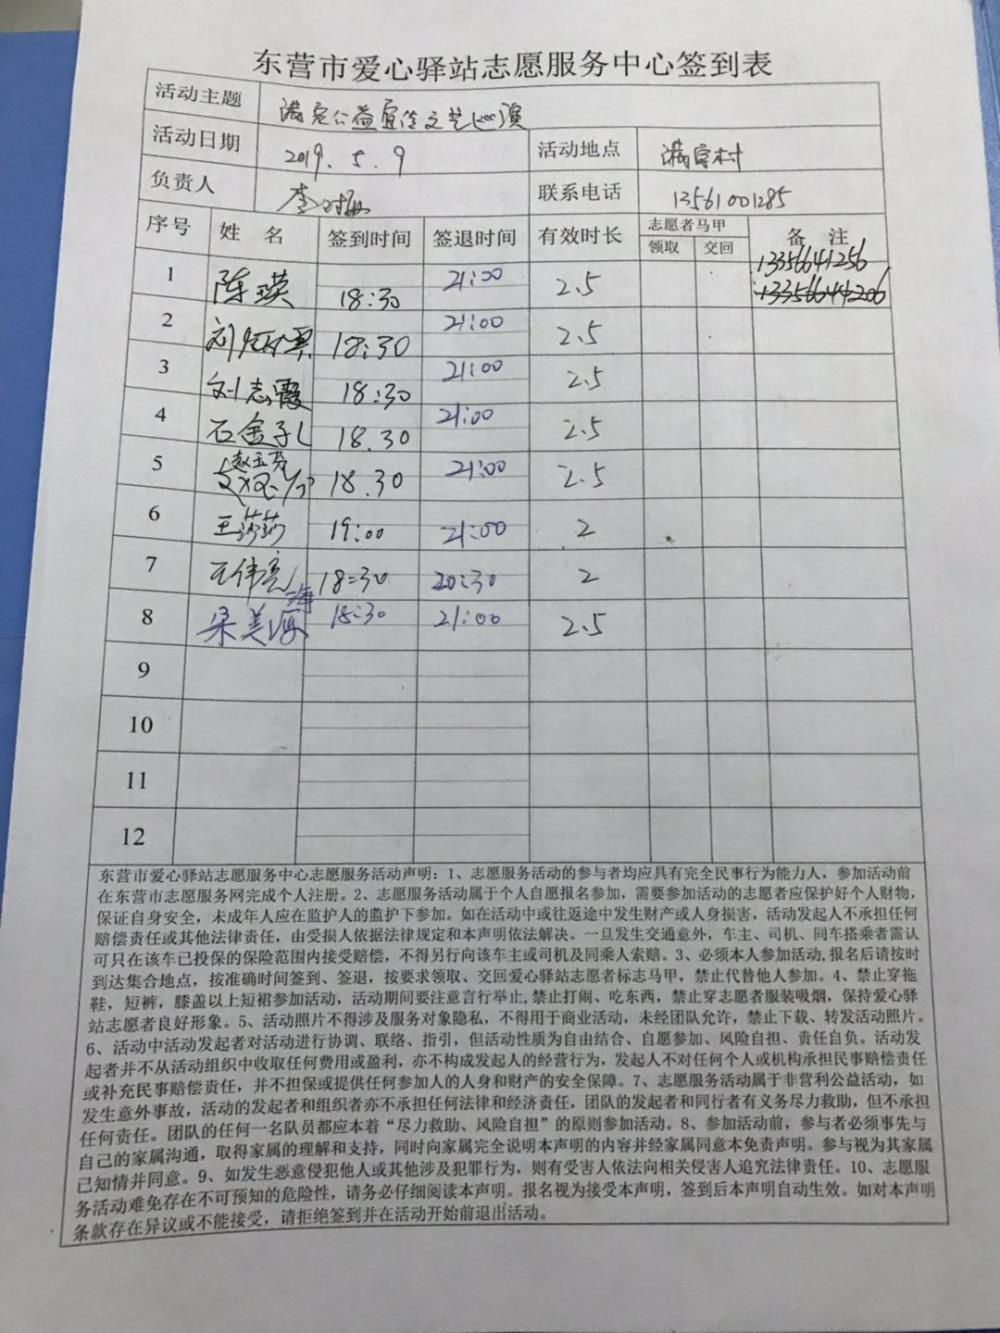 东营市爱心驿站志愿服务中心签到表
活动主题 满官公益宣传文艺巡演
活动日期 2019.5.9 活动地点 满官村
负责人 联系电话 13561001285
序号 姓名 签到时间 签退时间 有效时长 志愿者马甲 领取 交回 备注
1 陈瑛 18:30 21:00 2.5 13356641256
2 18:30 21:00 2.5
3 刘志霞 18:30 21:00 2.5
4 石金子 18.30 21:00 2.5
5 赵玉芬 18.30 21:00 2.5
6 王莎莎 19:00 21:00 2
7 王伟亮 18:30 20:30 2
8 梁美海 18:30 21:00 2.5
9
10
11
12
东营市爱心驿站志愿服务中心志愿服务活动声明：1、志愿服务活动的参与者均应具有完全民事行为能力人，参加活动前
在东营市志愿服务网完成个人注册。2、志愿服务活动属于个人自愿报名参加，需要参加活动的志愿者应保护好个人财物，
保证自身安全，未成年人应在监护人的监护下参加。如在活动中或往返途中发生财产或人身损害，活动发起人不承担任何
赔偿责任或其他法律责任，由受损人依据法律规定和本声明依法解决。一旦发生交通意外，车主、司机、同车搭乘者需认
可只在该车已投保的保险范围内接受赔偿，不得另行向该车主或司机及同乘人索赔。3、必须本人参加活动,报名后请按时
到达集合地点，按准确时间签到、签退，按要求领取、交回爱心驿站志愿者标志马甲，禁止代替他人参加。4、禁止穿拖
鞋，短裤，膝盖以上短裙参加活动，活动期间要注意言行举止,禁止打闹、吃东西，禁止穿志愿者服装吸烟，保持爱心驿
站志愿者良好形象。5、活动照片不得涉及服务对象隐私，不得用于商业活动，未经团队允许，禁止下载、转发活动照片。
6、活动中活动发起者对活动进行协调、联络、指引，但活动性质为自由结合、自愿参加、风险自担、责任自负。活动发
起者并不从活动组织中收取任何费用或盈利，亦不构成发起人的经营行为，发起人不对任何个人或机构承担民事赔偿责任
或补充民事赔偿责任，并不担保或提供任何参加人的人身和财产的安全保障。7、志愿服务活动属于非营利公益活动，如
发生意外事故，活动的发起者和组织者亦不承担任何法律和经济责任，团队的发起者和同行者有义务尽力救助，但不承担
任何责任。团队的任何一名队员都应本着“尽力救助、风险自担”的原则参加活动。8、参加活动前，参与者必须事先与
自己的家属沟通，取得家属的理解和支持，同时向家属完全说明本声明的内容并经家属同意本免责声明。参与视为其家属
已知情并同意。9、如发生恶意侵犯他人或其他涉及犯罪行为，则有受害人依法向相关侵害人追究法律责任。10、志愿服
务活动难免存在不可预知的危险性，请务必仔细阅读本声明。报名视为接受本声明，签到后本声明自动生效。如对本声明
条款存在异议或不能接受，请拒绝签到并在活动开始前退出活动。